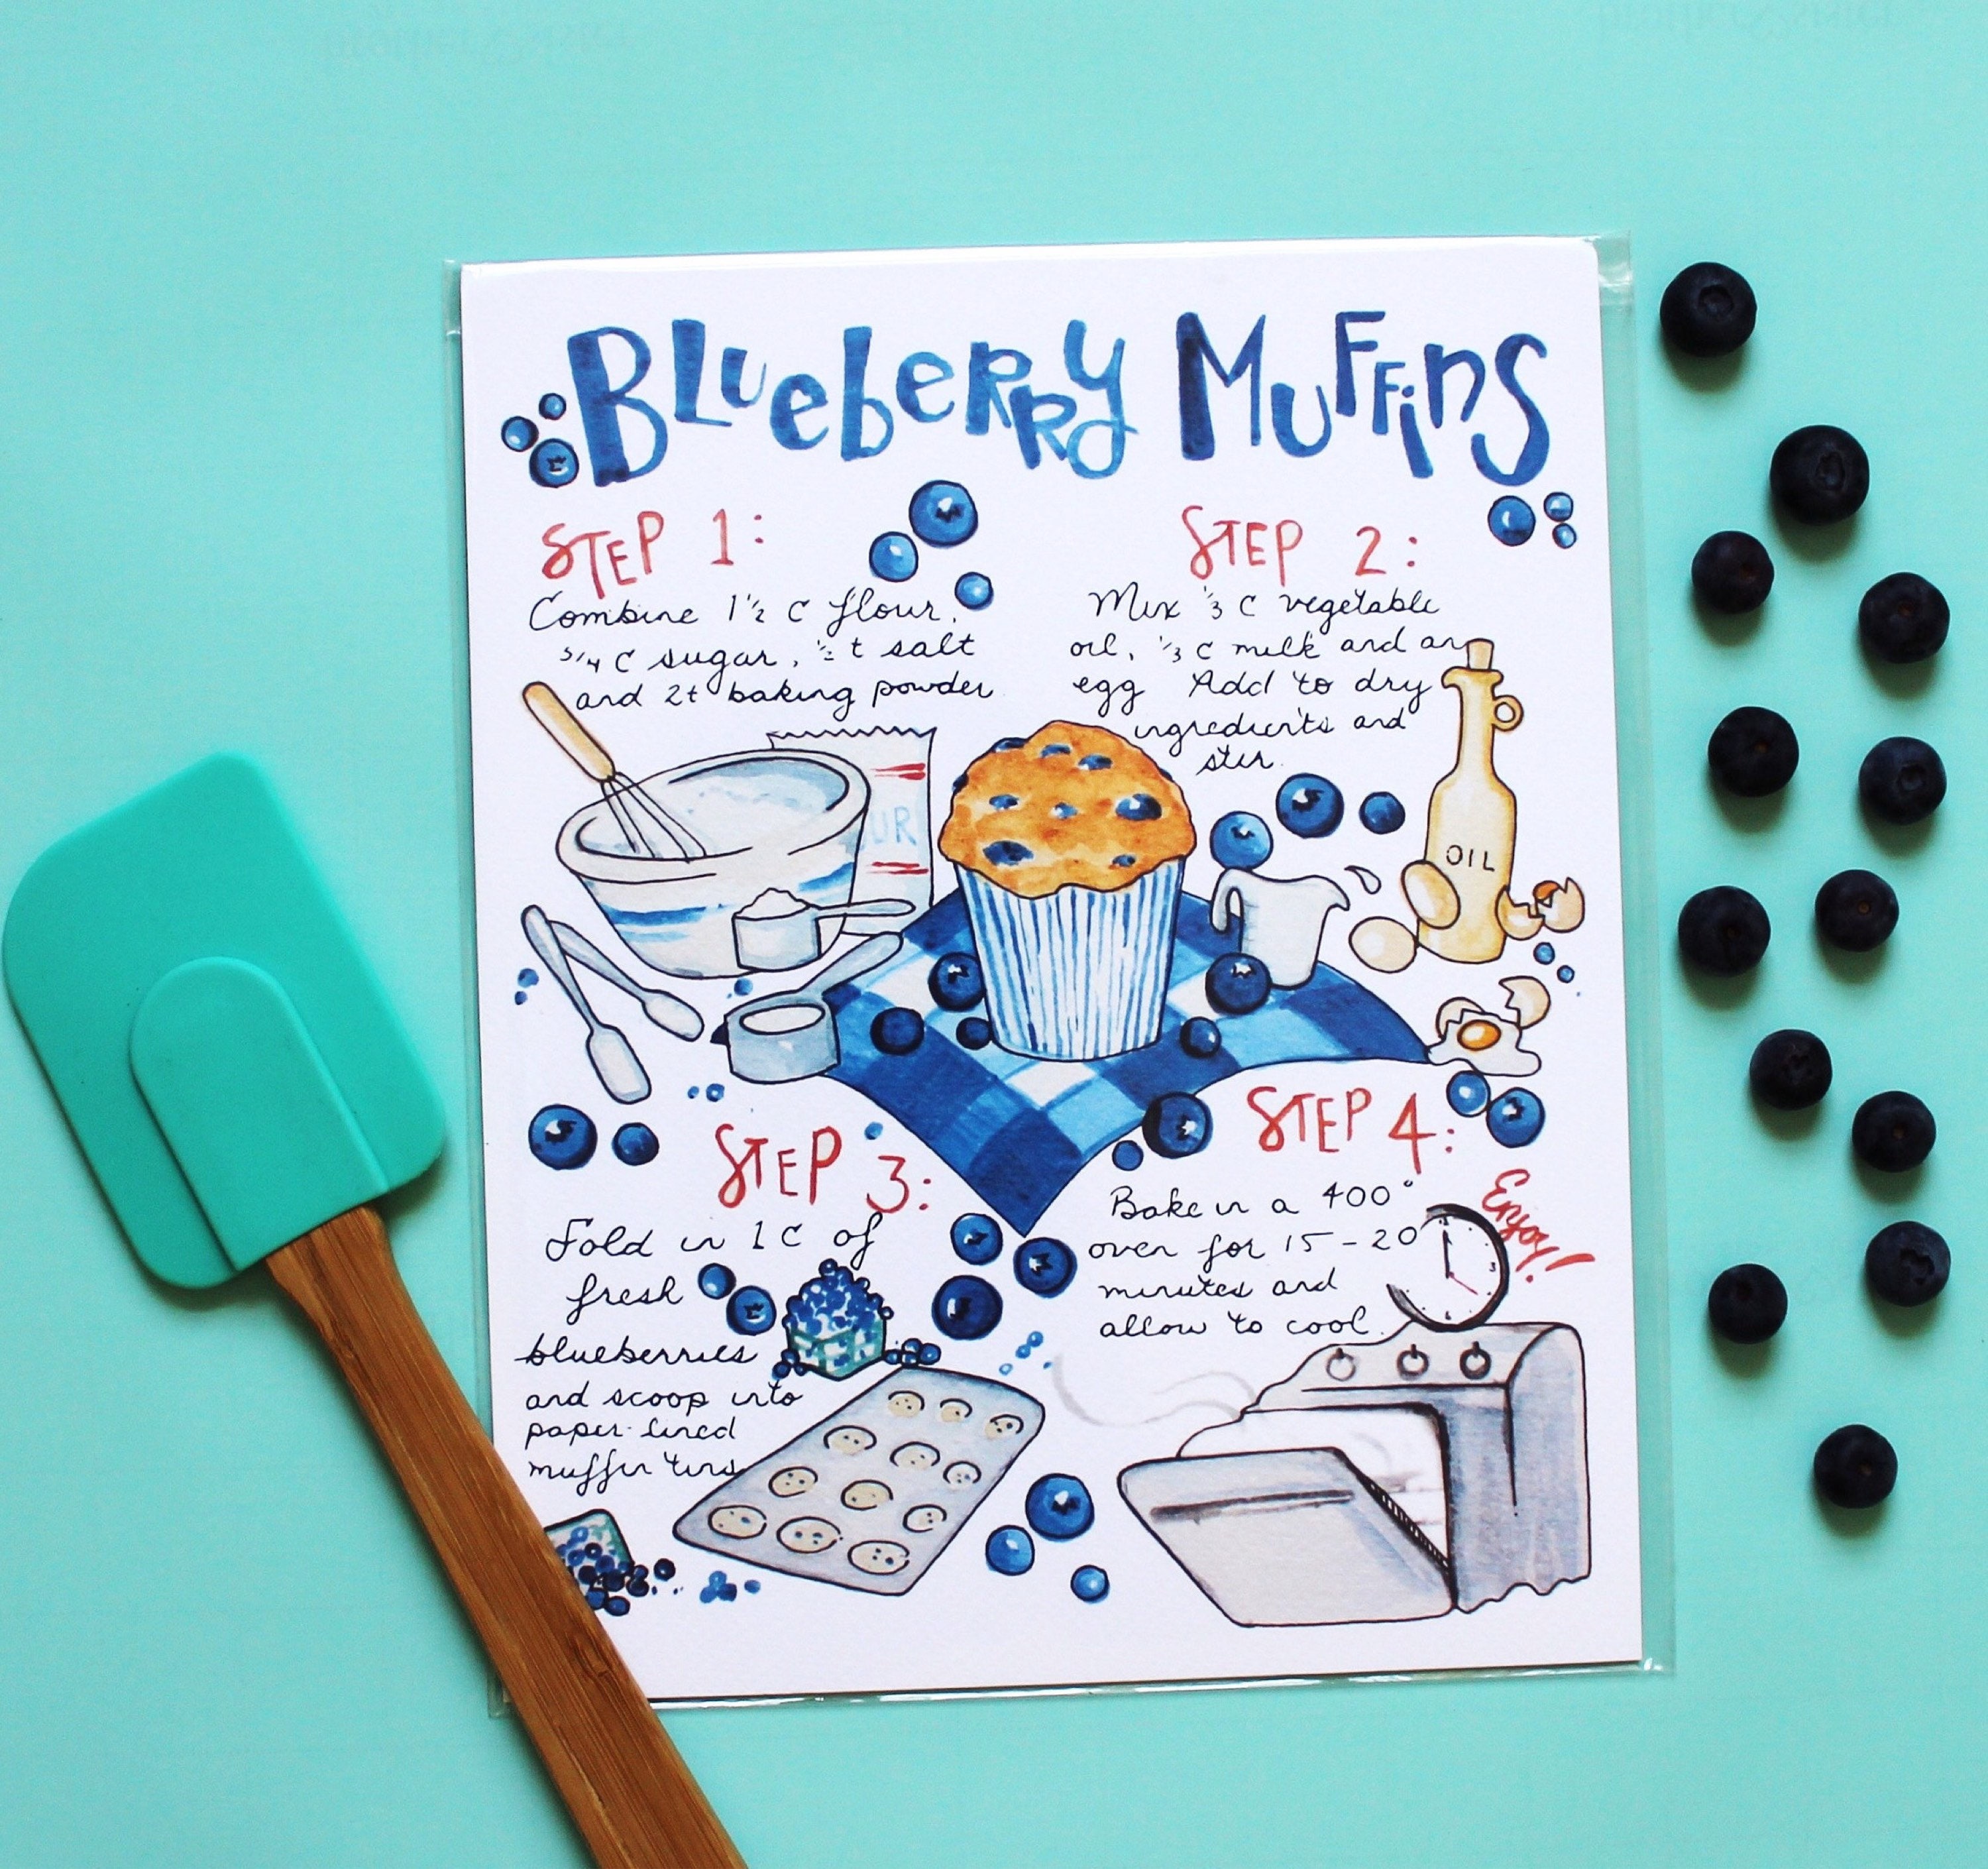 BLueberry MuFFinS
STEP 1:
Combine 1 1/2 C flour,
3/4 C sugar, 1/2 t salt
and 2t baking powder
UR
STEP 2:
Mix 1/3 C vegetable
oil, 1/3 C milk and an
egg Add to dry
ingredients and
stir.
OIL
STEP 3:
Fold in 1 C of
fresh
blueberries
and scoop into
paper-lined
muffin tins
STEP 4:
Bake in a 400°
oven for 15-20
minutes and
allow to cool.
Enjoy!